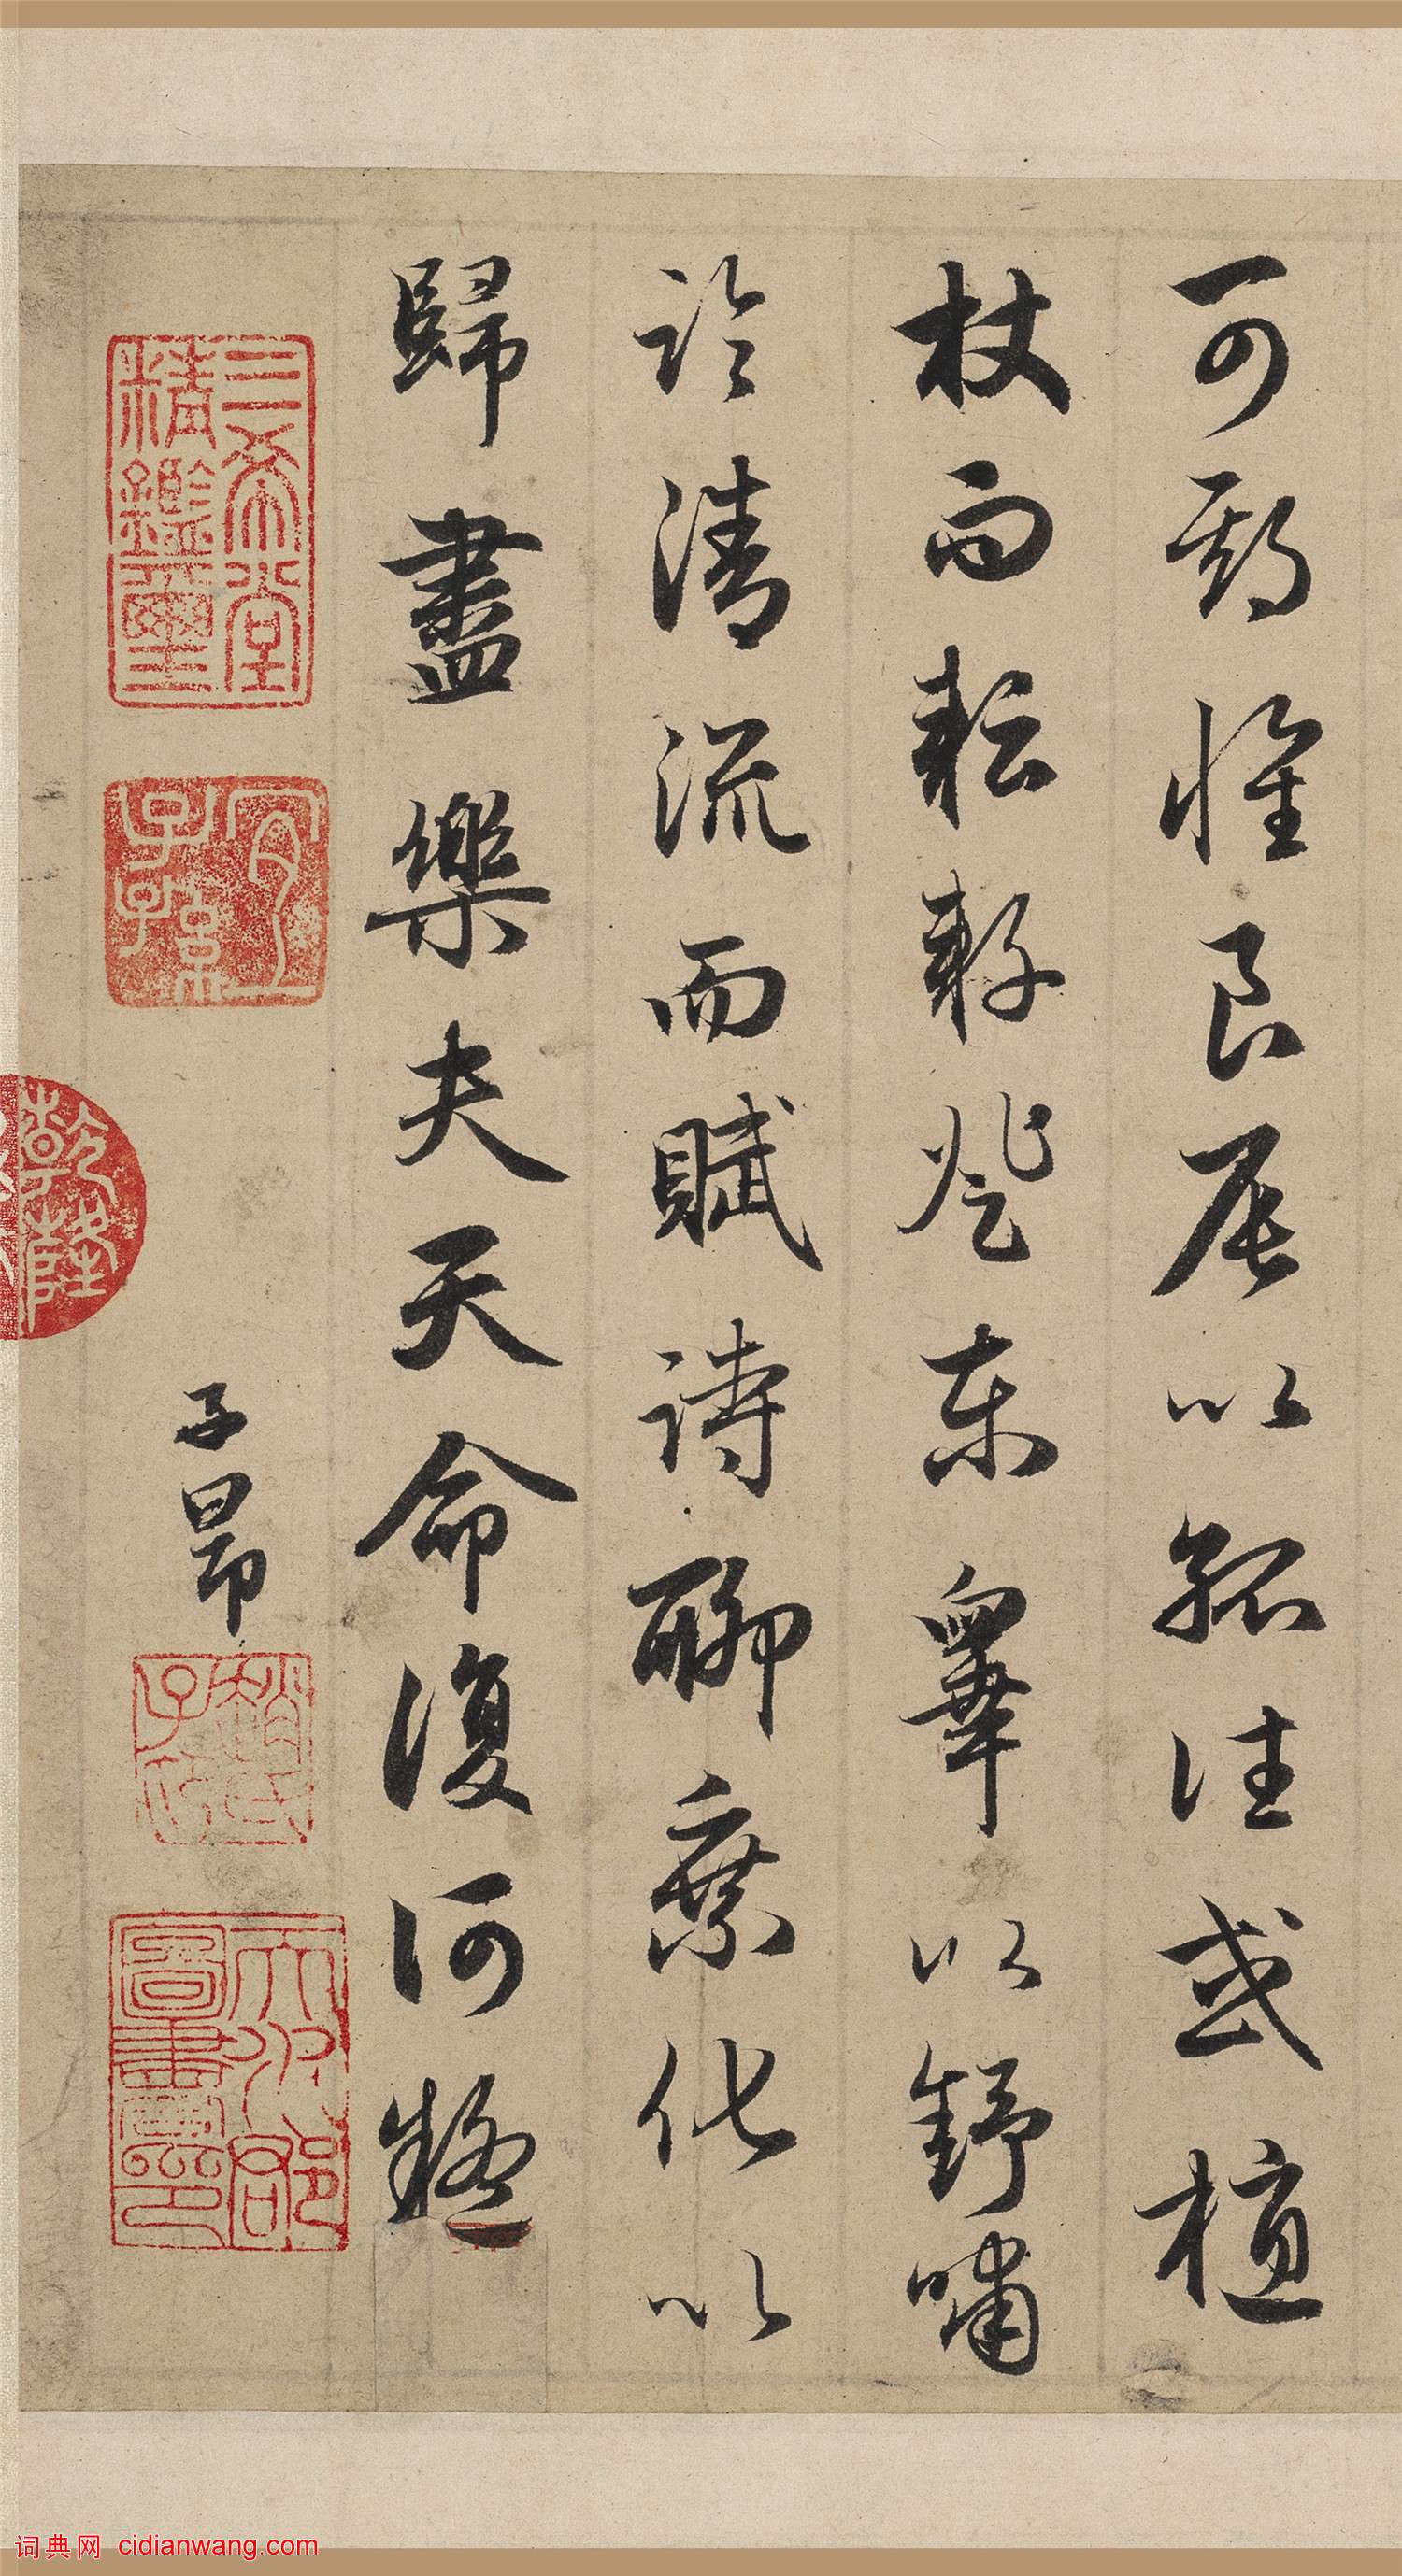 可期惟良辰以孤往或植
杖而耘耔登東皐以舒嘯
臨清流而賦詩聊乘化以
歸盡樂夫天命復何疑
子昂
三希堂精鑑璽
宜子孫
乾隆
趙氏子昂
天水郡圖書印
词典网 cidianwang.com